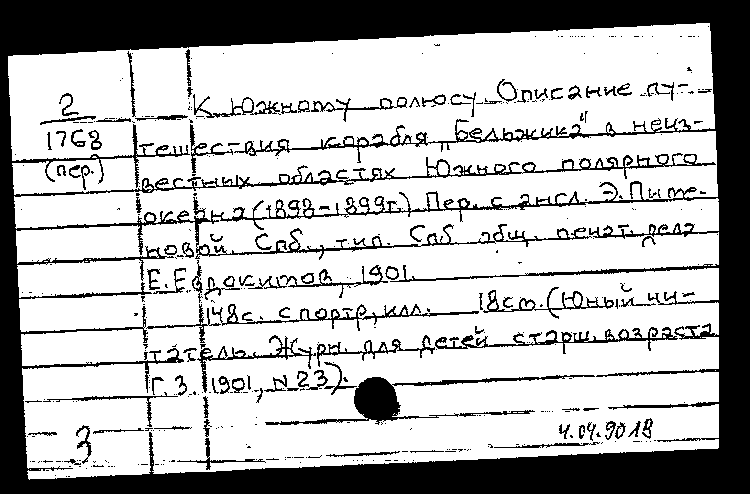 2
1768
(пер.)
К Южному полюсу. Описание пу-
тешествия корабля „Бельжика" в неиз-
вестных областях Южного полярного
океана (1898-1899г.) Пер. с англ. Э. Пиме-
новой. Спб., тип. Спб общ. печат. дела
Е. Евдокимов, 1901.
148с. с портр., илл. 18см. (Юный чи-
татель. Журн. для детей старш. возраста
Г. 3. 1901, N 23).
3
4.04.90